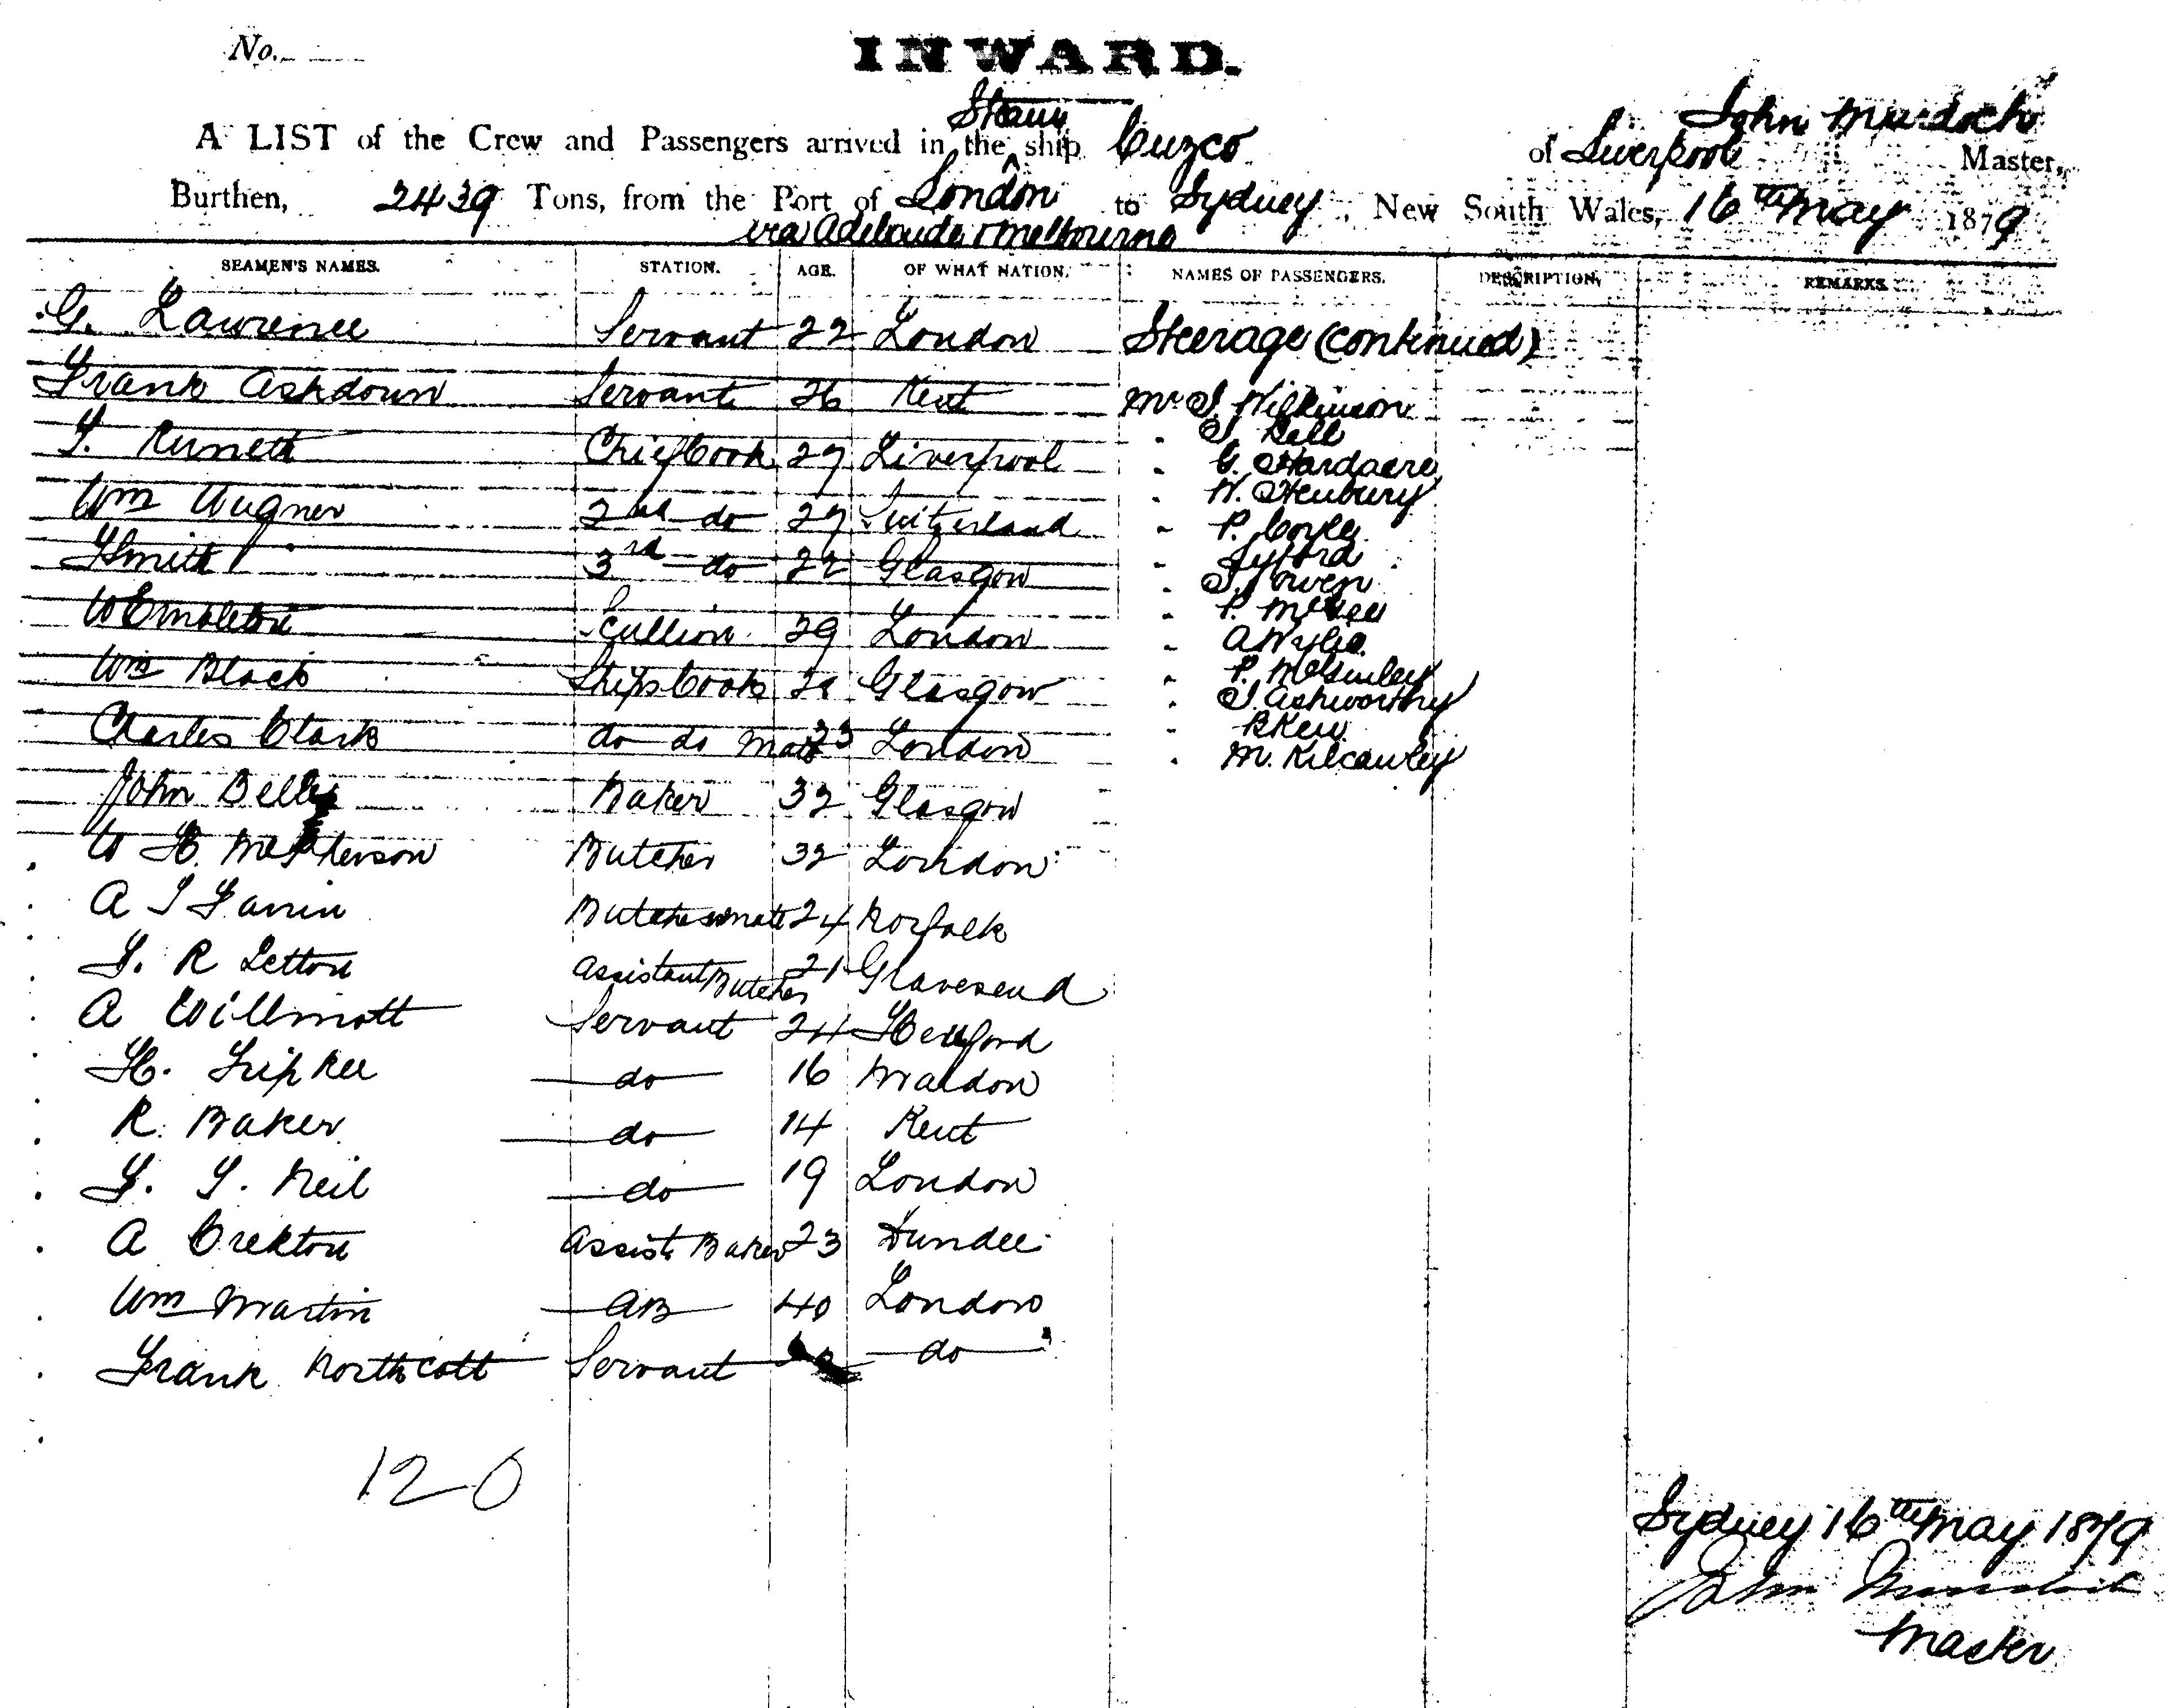 No.
INWARD.
Steam John Murdoch
A LIST of the Crew and Passengers arrived in the ship Cuzco of Liverpool Master,
Burthen, 2439 Tons, from the Port of London to Sydney, New South Wales, 16th May 1879
via Adelaide & Melbourne
SEAMEN'S NAMES. STATION. AGE. OF WHAT NATION. NAMES OF PASSENGERS. DESCRIPTION. REMARKS.
G. Lawrence Servant 22 London Steerage (continued)
Frank Ashdown Servant 26 Kent Mr J. Wilkinson
J. Bell
Chief Cook 27 Liverpool G. Hardacre
W. Henbury
Wm Wugner 2nd do 27 Switzerland P. Coyle
Syford
Smith 3rd do 22 Glasgow J. Owen
P. McGee
W Embleton Scullion 29 London A Wylie
Wm Black Ships Cook Glasgow P. McGinley
J. Ashworthy
Charles Clark do do Mate 23 London B Kew
M. Kilcawley
John Bell Baker 32 Glasgow
W H. McPherson Butcher 32 London
A Butchers mate 24 Norfolk
R Letton Assistant Butcher 21 Gravesend
A Willmott Servant 24 Hereford
H. do 16 Maldon
R. Baker do 14 Kent
Neil do 19 London
A Crekton Assist Baker 23 Dundee
Wm Martin AB 40 London
Frank Northcott Servant do
120
Sydney 16th May 1879
John Murdoch
Master